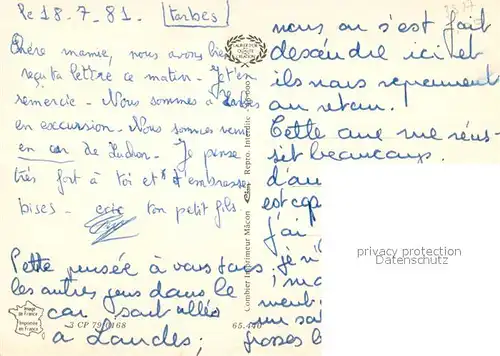 le 18.7.81. Tarbes
Chère mamie, nous avons bien
reçu ta lettre ce matin. Je t'en
remercie - Nous sommes à Tarbes
en excursion. Nous sommes venu
en car de Luchon. Je pense
très fort à toi et t'embrasse
bises - eric ton petit fils
Petite pensée à vous tous
les autres gens dans le
car sont allés
à Lourdes;
nous on s'est fait
descendre ici et
ils nous reprennent
au retour.
Cette cure me réus-
sit beaucoup.
d'au
est
j'ai
je n'
ment
un
grosses b
Combier Imprimeur Mâcon
Repro. Interdite
Image de France
Imprimé en France
3 CP 79 0168
65.440
privacy protection
oldthing.de